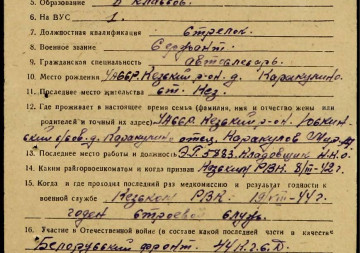 5. Образование 6 классов.
6. На ВУС 1.
7. Должностная квалификация стрелок.
8. Военное звание Ефрейт
9. Гражданская специальность автослесарь.
10. Место рождения УАССР. Кезский р-он. д. Каракулино.
11. Последнее место жительства ст. Кез.
12. Где проживает в настоящее время семья (фамилия, имя и отчество жены или
родителей и точный их адрес) УАССР. Кезский р-он.
д. Каракулино отец Каракулов
13. Последнее место работы и должность 5883. Кладовщик
14. Каким райгорвоенкоматом и когда призван Кезским РВК. 8/III-42г.
15. Когда и где проходил последний раз медкомиссию и результат годности к
военной службе Кезском РВК. 19/VIII-44г.
годен строевой служ.
16. Участие в Отечественной войне (в составе какой последней части и в качестве
"Белорусский фронт. 44